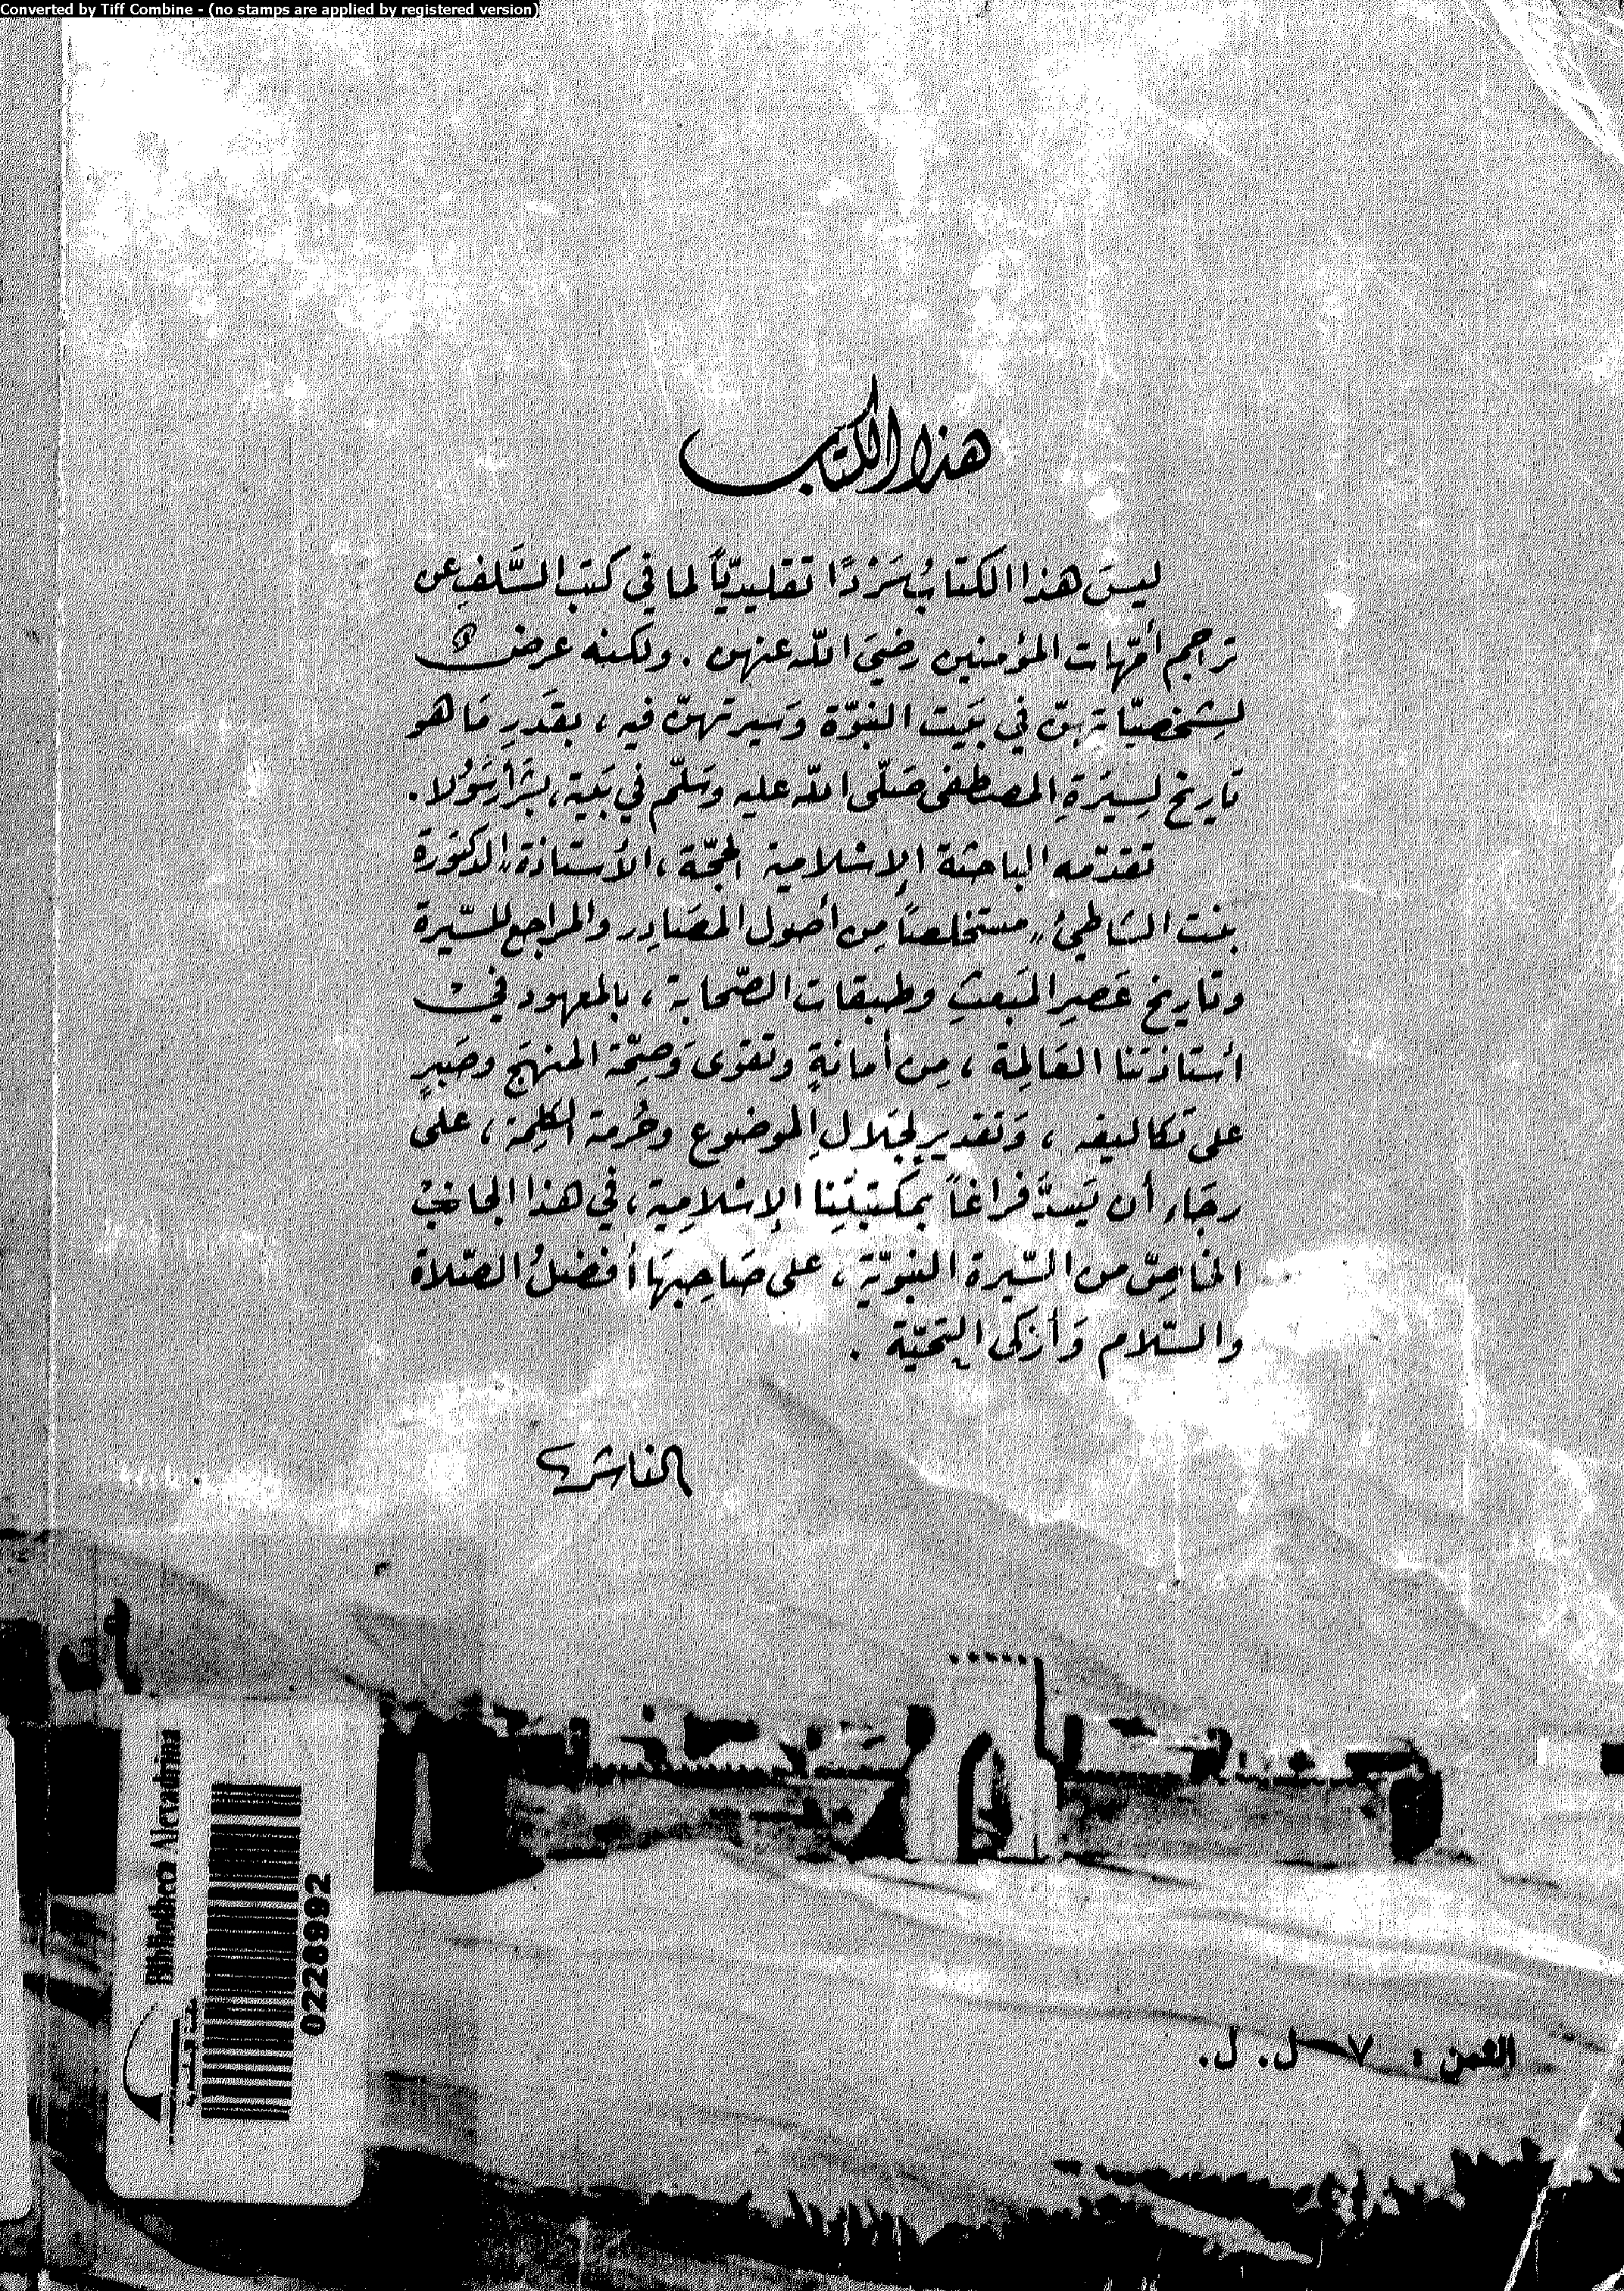 Converted by Tiff Combine - (no stamps are applied by registered version)
هذا الكتاب
ليسَ هذا الكتابُ سَرْدًا تقليديّاً لما في كتب السَّلفِ عن
تراجم أمّهات المؤمنين رضيَ اللّه عنهن . ولكنه عرضٌ
لِشخصيّاتهنّ في بَيت النبوّة وَسيرتهنّ فيه ، بقَدرِ مَا هو
تاريخ لِسِيَرةِ المصطفى صَلّى اللّه عليه وسَلّم في بَيته، بشَراً رَسُولا .
تقدّمه الباحثة الإسلامية الحجّة ، الأستاذة الدكتورة
بنت الشاطئ، مستخلصاً مِن أصول المصَادِر والمراجع للسّيرة
وتاريخ عَصرِ المَبعثِ وطبقات الصّحابة ، بالمعهود في
أستاذتنا العَالِمة ، مِن أمانةٍ وتقوى وَصِحّة المنهَج وصَبرٍ
على تَكاليفه ، وَتقديرٍ لجَلالِ الموضوع وحُرمة الكلِمة ، على
رجَاء أن يَسدَّ فراغاً بمكتبتِنا الإسْلامِية ، في هذا الجانبْ
الخاصِّ من السّيرة النبويّة ، على صَاحِبهَا أفضلُ الصّلاة
والسّلام وَأزكى التحيّة .
الناشر
Bibliotheca Alexandrina
0226992
الثمن : ٧ ل. ل.